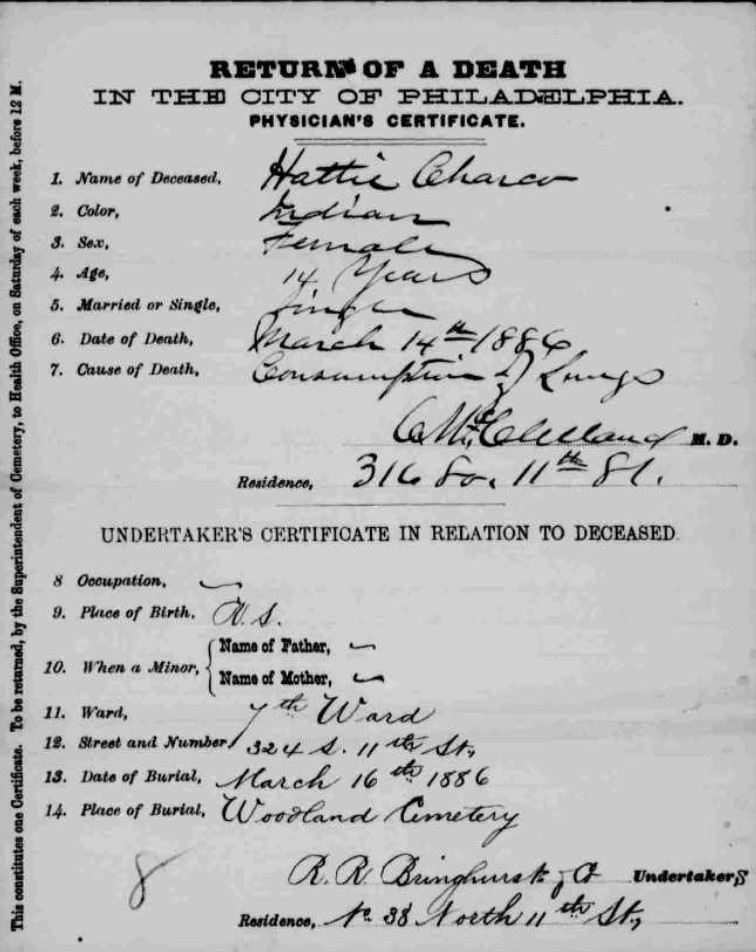 RETURN OF A DEATH
IN THE CITY OF PHILADELPHIA.
PHYSICIAN'S CERTIFICATE.
1. Name of Deceased, Hattie Charco
2. Color, Indian
3. Sex, Female
4. Age, 14 Years
5. Married or Single, Single
6. Date of Death, March 14th 1886
7. Cause of Death, Consumption of Lungs
C McClelland M. D.
Residence, 316 So. 11th St.
UNDERTAKER'S CERTIFICATE IN RELATION TO DECEASED
8 Occupation,
9. Place of Birth, U. S.
10. When a Minor, Name of Father,
Name of Mother,
11. Ward, 7th Ward
12. Street and Number 324 S. 11th St,
13. Date of Burial, March 16th 1886
14. Place of Burial, Woodland Cemetery
R. R. Bringhurst & Co Undertakers
Residence, No. 38 North 11th St,
8
This constitutes one Certificate. To be returned, by the Superintendent of Cemetery, to Health Office, on Saturday of each week, before 12 M.